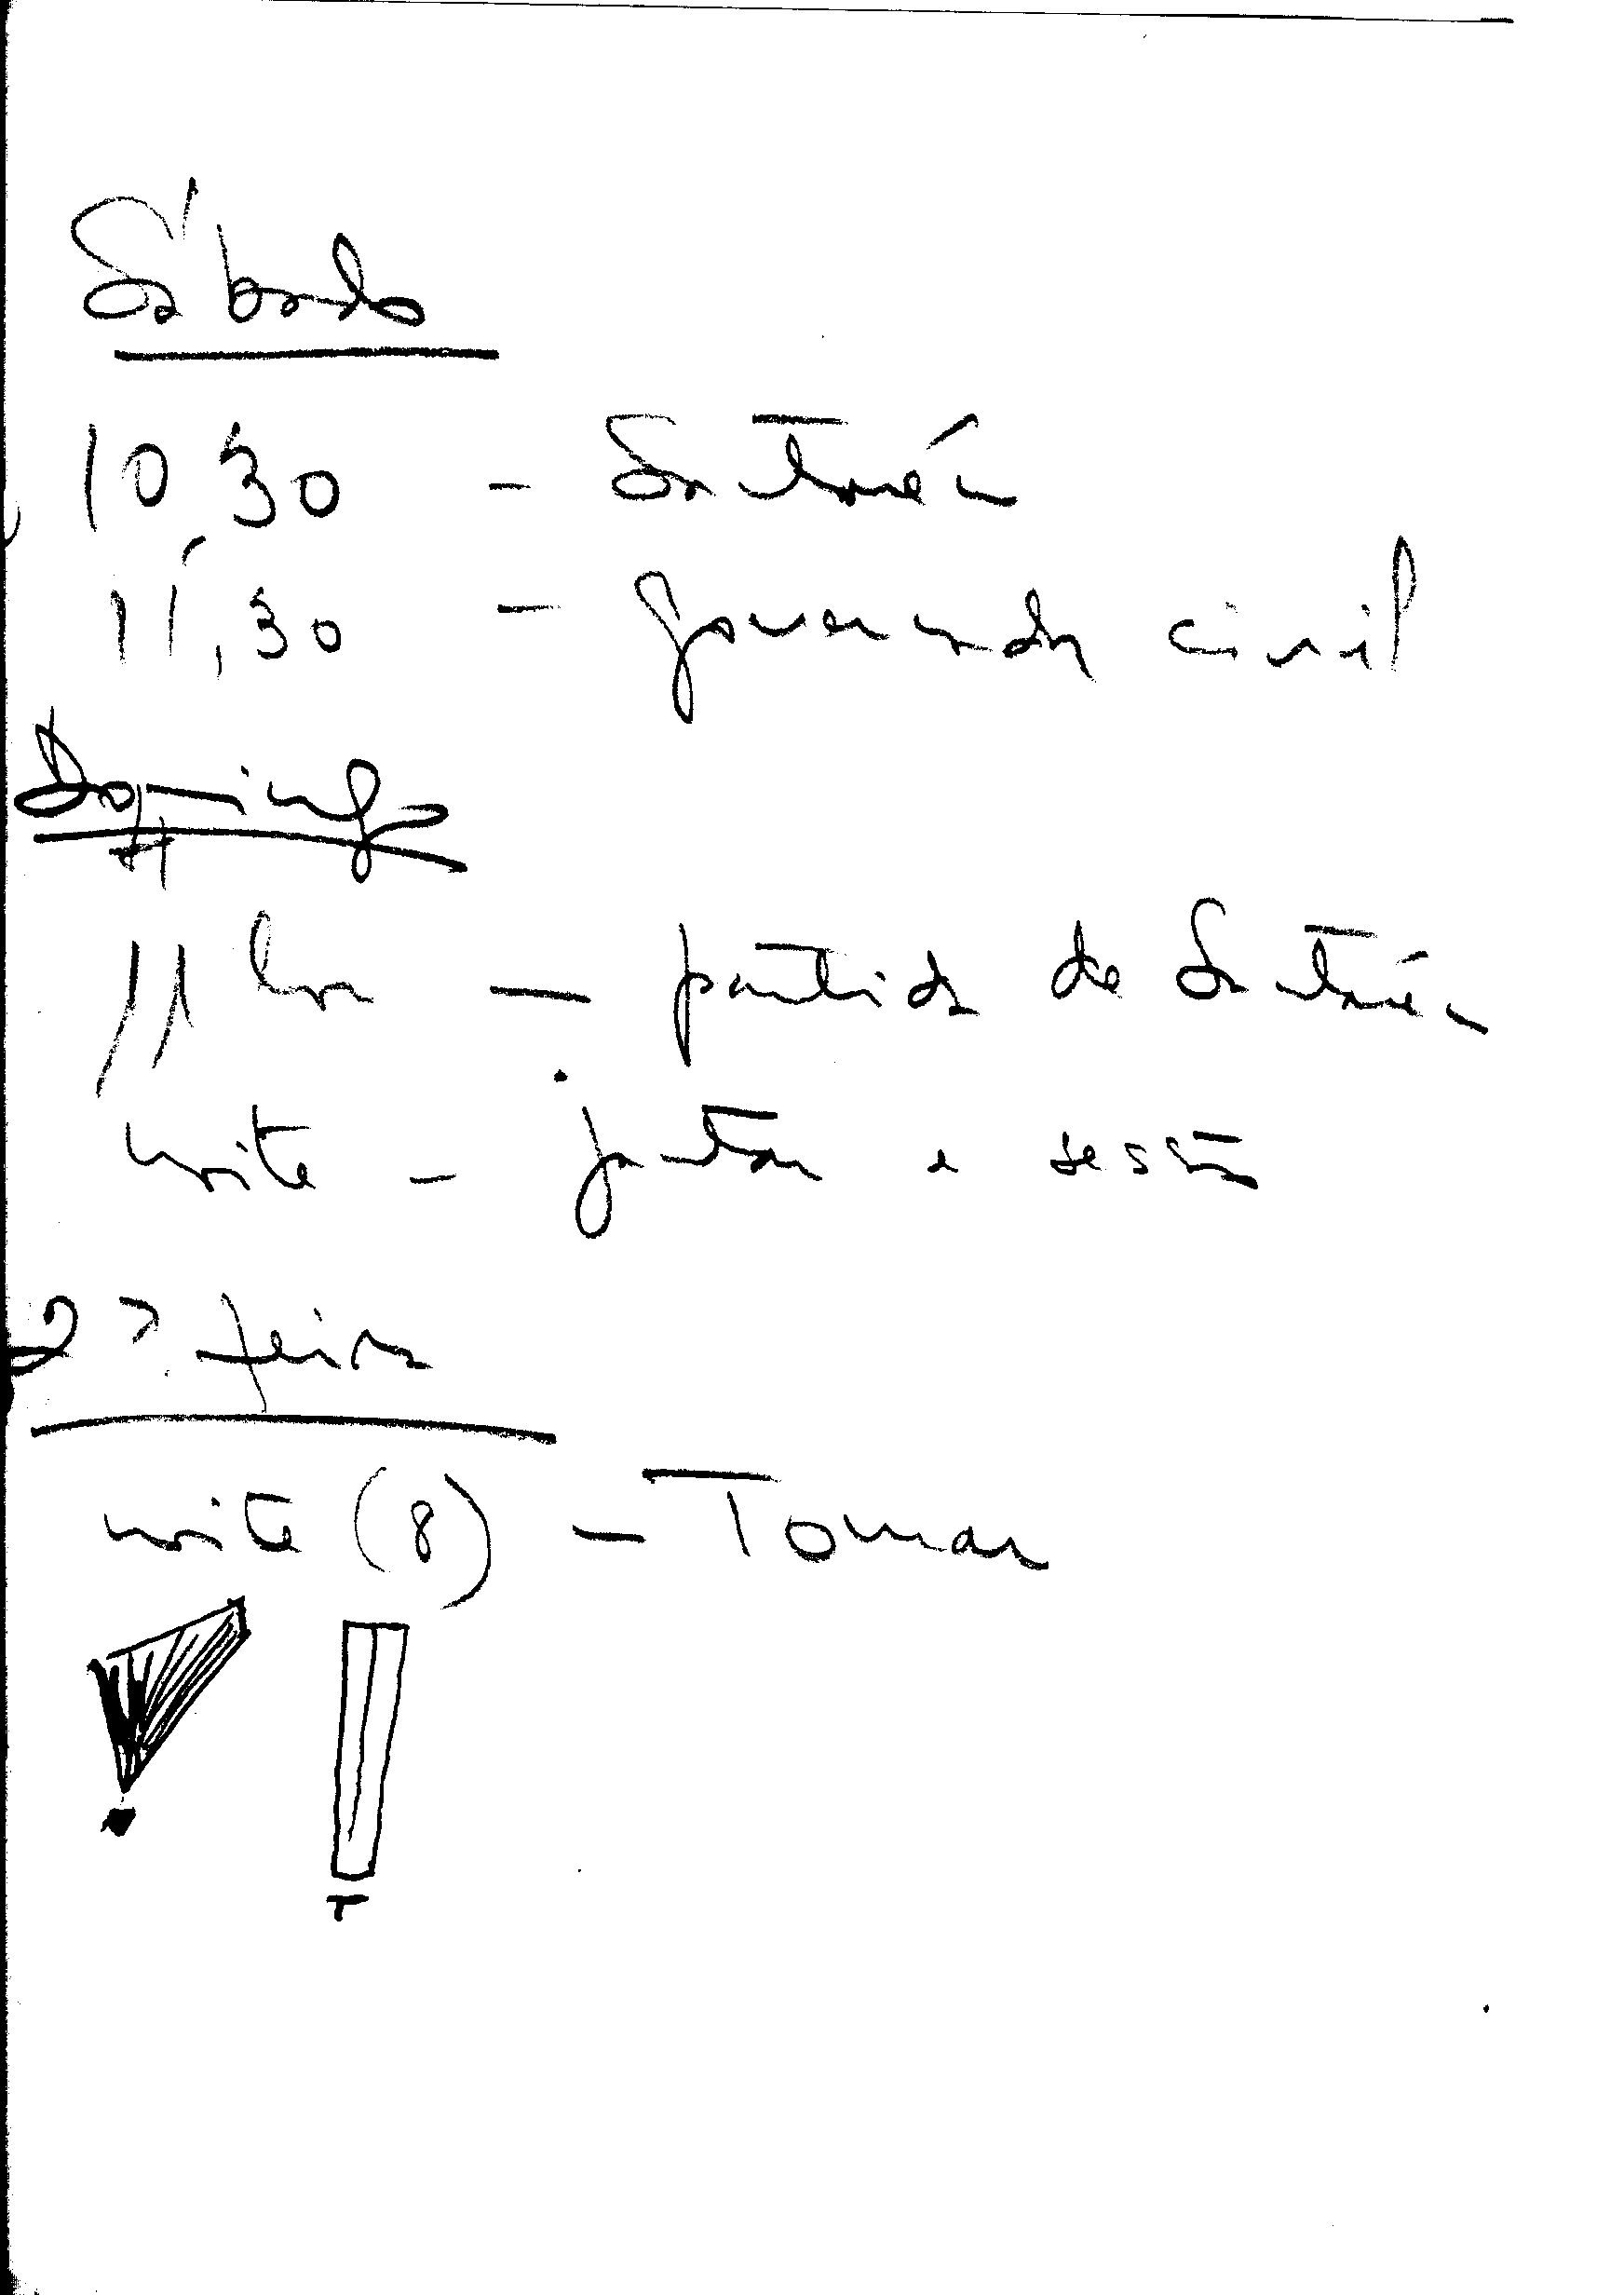 Sábado
10,30 - Santarém
11,30 - governador civil
Domingo
11 horas - partida de Santarém
noite - jantar e sessão
2ª feira
noite (8) - Tomar